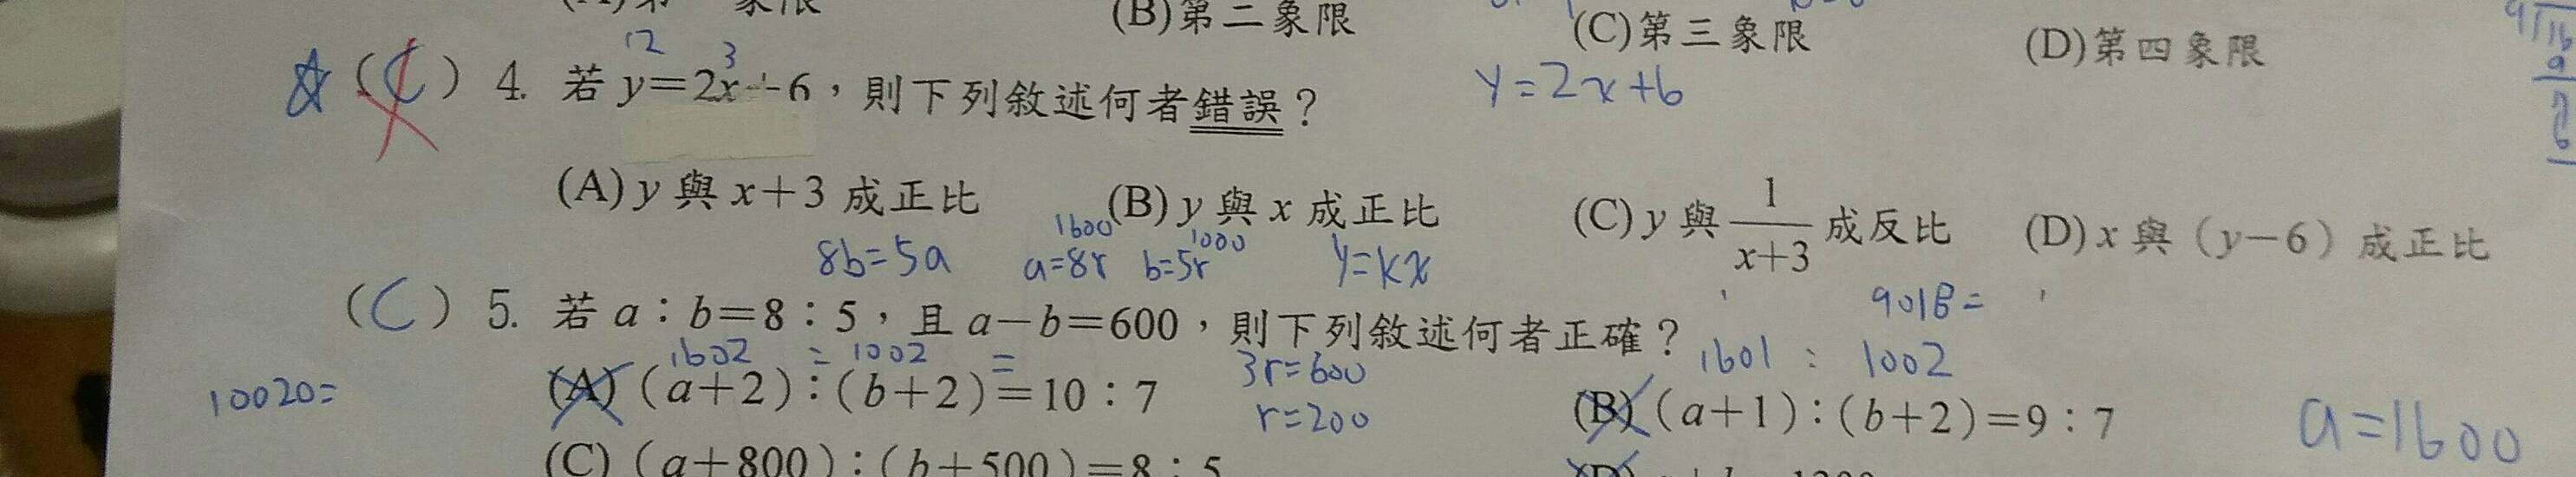 (B)第二象限 (C)第三象限 (D)第四象限
12 3
(C) 4. 若 y=2x+6，則下列敘述何者錯誤？ y=2x+6
(A) y 與 x+3 成正比 (B) y 與 x 成正比 (C) y 與 1/(x+3) 成反比 (D) x 與 (y-6) 成正比
1600 1000
8b=5a a=8r b=5r y=kx
9018=
(C) 5. 若 a：b=8：5，且 a-b=600，則下列敘述何者正確？
1602 = 1002 = 3r=600 1601 : 1002
10020= (A) (a+2)：(b+2)=10：7 r=200 (B) (a+1)：(b+2)=9：7 a=1600
(C) (a+800)：(b+500)=8：5